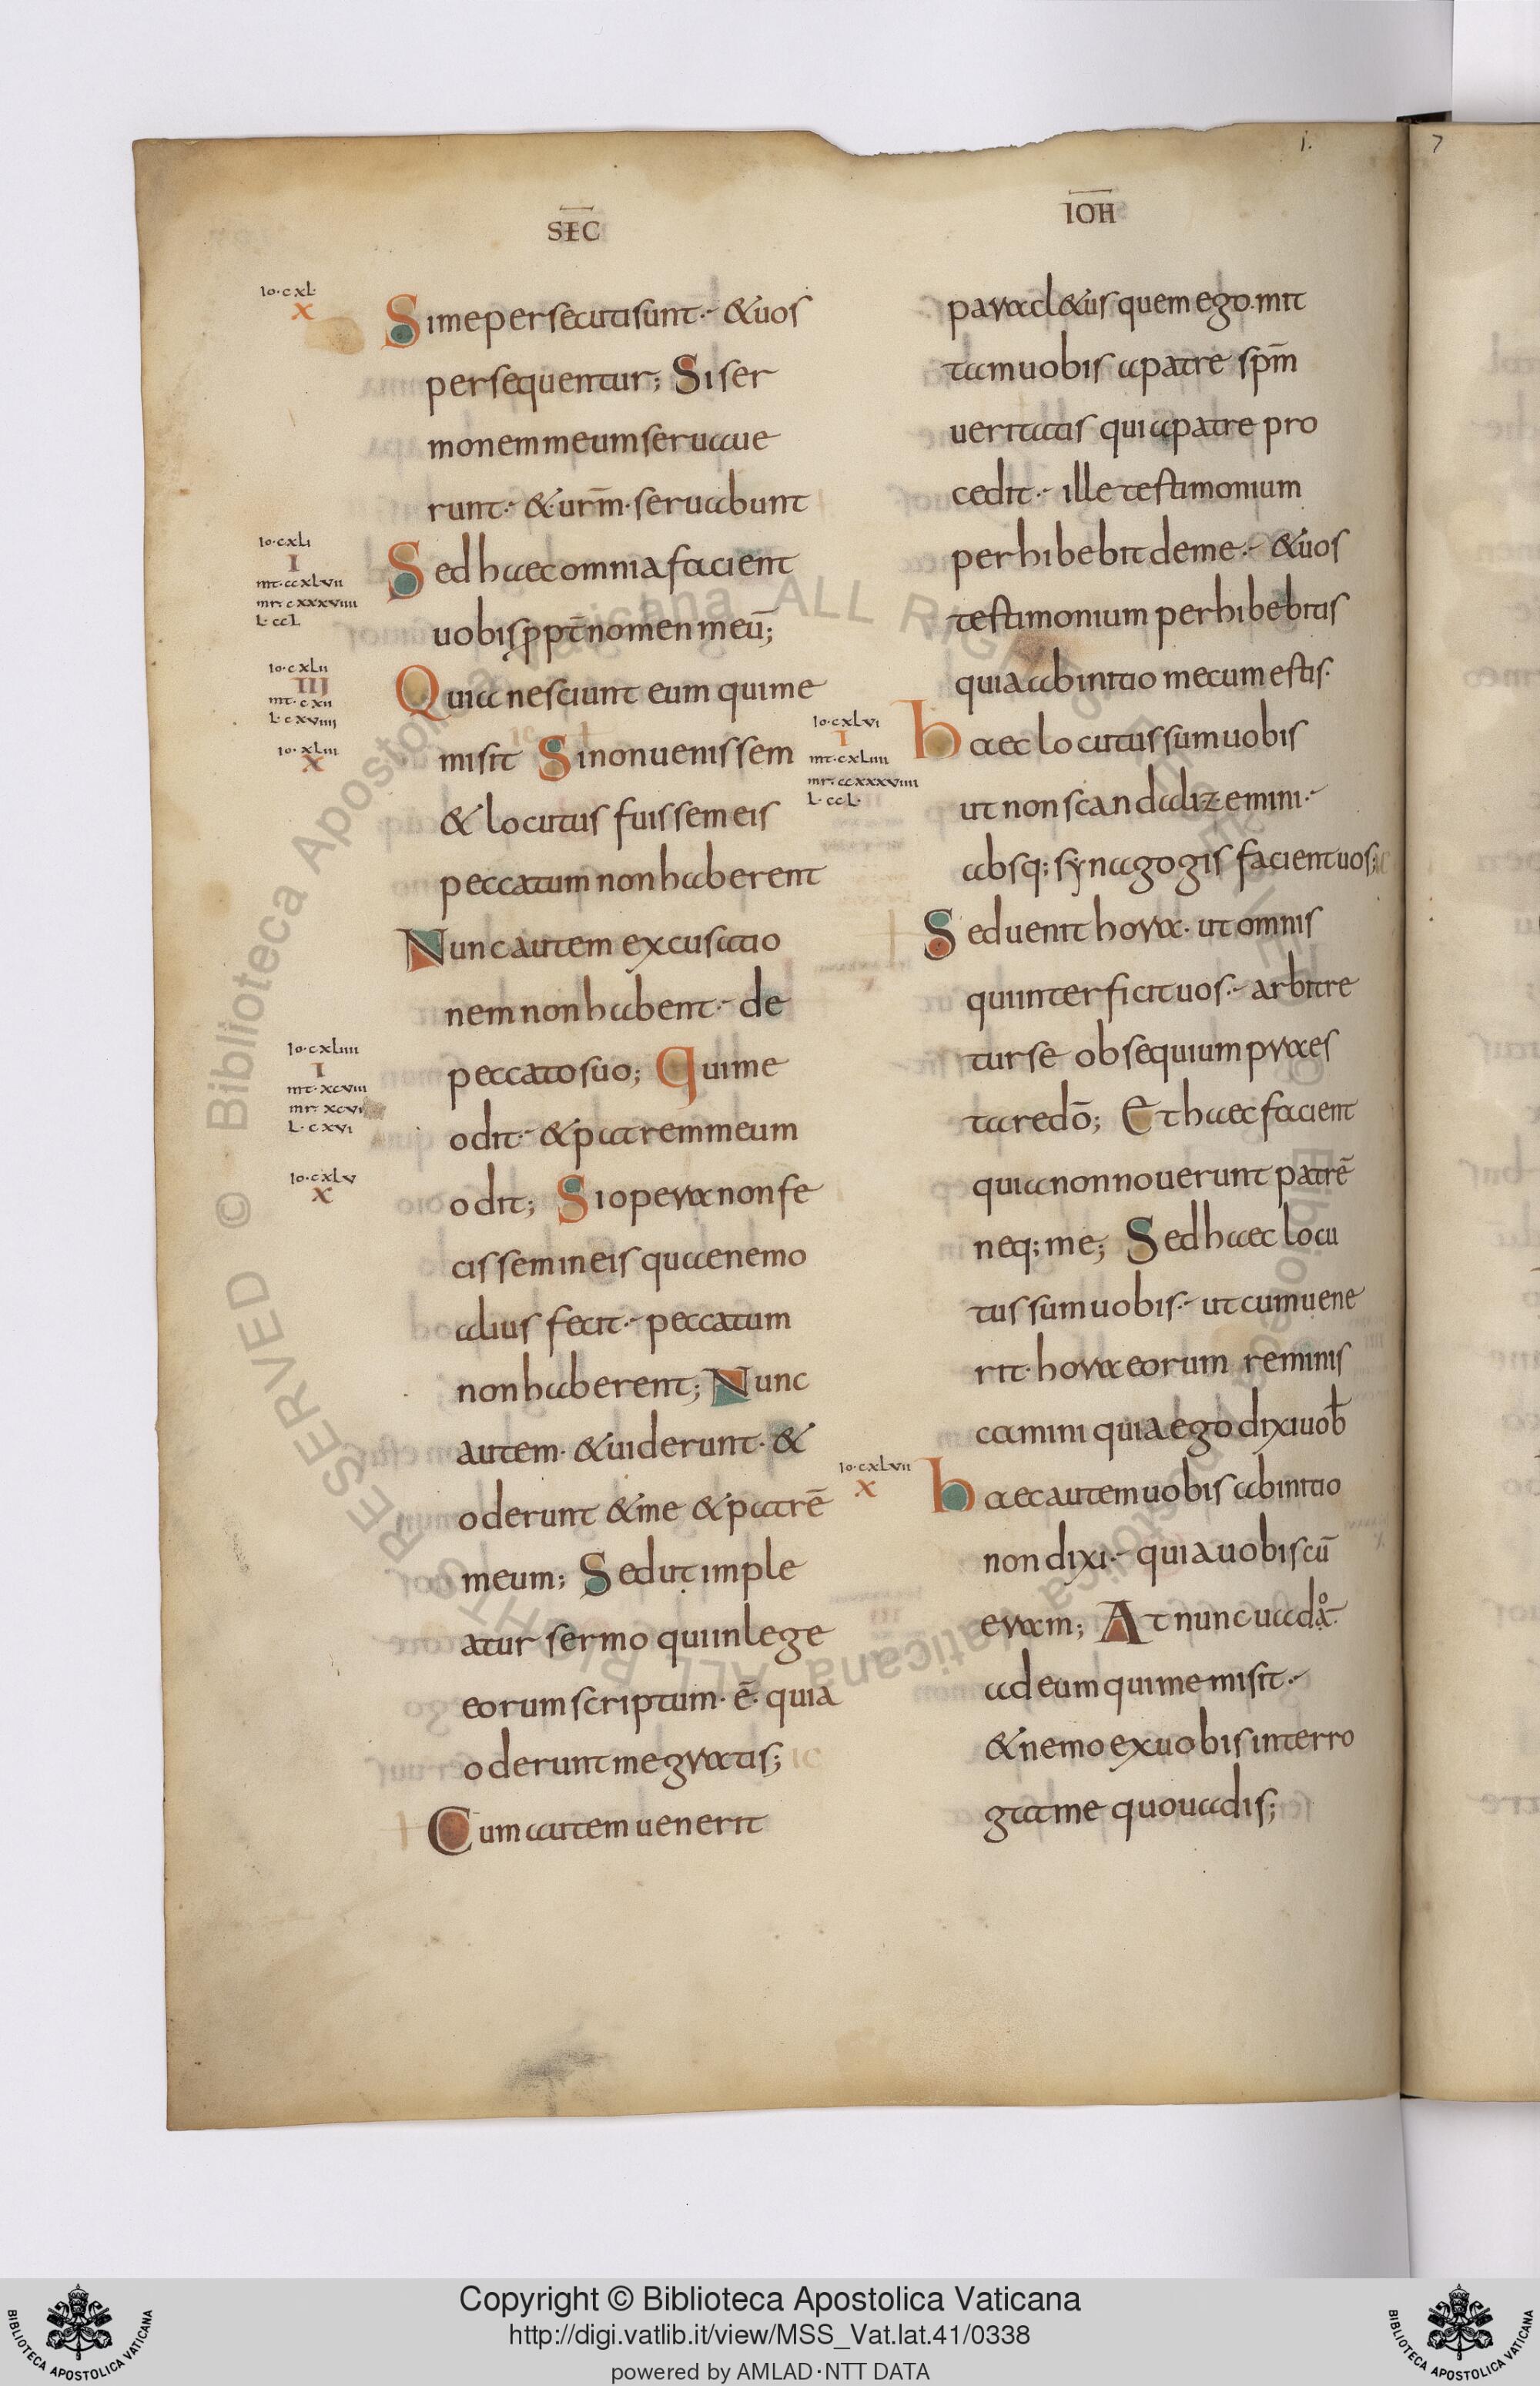 SEC
IOH
1.
7
Io·cxl·
X
Si me persecuti sunt·- & uos
persequentur; Si ser
monem meum seruaue
runt·- & ur̄m· seruabunt
Io·cxli
I
mt·ccxlvii
mr·cxxxviiii
L·ccl
Sed haec omnia facient
uobis ppt̄ nomen meū;
Io·cxlii
III
mt·cxii
L·cxviiii
Quia nesciunt eum qui me
Io·xliii
X
misit Si non uenissem
& locutus fuissem eis
peccatum non haberent
Nunc autem excusatio
nem non habent·- de
Io·cxliiii
I
mt·xcviii
mr·xcvi
L·cxvi
peccato suo; Qui me
odit·- & patrem meum
Io·cxlv
X
odit; Si opera non fe
cissem in eis quae nemo
alius fecit·- peccatum
non haberent; Nunc
autem· & uiderunt· &
oderunt & me & patrē
meum; Sed ut imple
atur sermo qui in lege
eorum scriptum· ē· quia
oderunt me gratis;
Cum autem uenerit
paracl&us quem ego mit
tam uobis a patre sp̄m
ueritatis qui a patre pro
cedit·- ille testimonium
perhibebit de me·- & uos
testimonium perhibebitis
quia ab initio mecum estis·
Io·cxlvi
I
mt·cxliiii
mr·ccxxxviiii
L·ccl·
haec locutus sum uobis
ut non scandalizemini·-
absq; synagogis facient uos;
Sed uenit hora· ut omnis
qui interficit uos·- arbitre
tur se obsequium praes
tare dō; Et haec facient
quia non nouerunt patrē
neq; me; Sed haec locu
tus sum uobis·- ut cum uene
rit· hora eorum reminis
camini quia ego dixi uob̄
Io·cxlvii
X
haec autem uobis ab initio
non dixi·- quia uobis cū
eram; At nunc uado
ad eum qui me misit·-
& nemo ex uobis interro
gat me quo uadis;
© Biblioteca Apostolica Vaticana ALL RIGHTS RESERVED
Copyright © Biblioteca Apostolica Vaticana
http://digi.vatlib.it/view/MSS_Vat.lat.41/0338
powered by AMLAD·NTT DATA
BIBLIOTECA APOSTOLICA VATICANA
BIBLIOTECA APOSTOLICA VATICANA